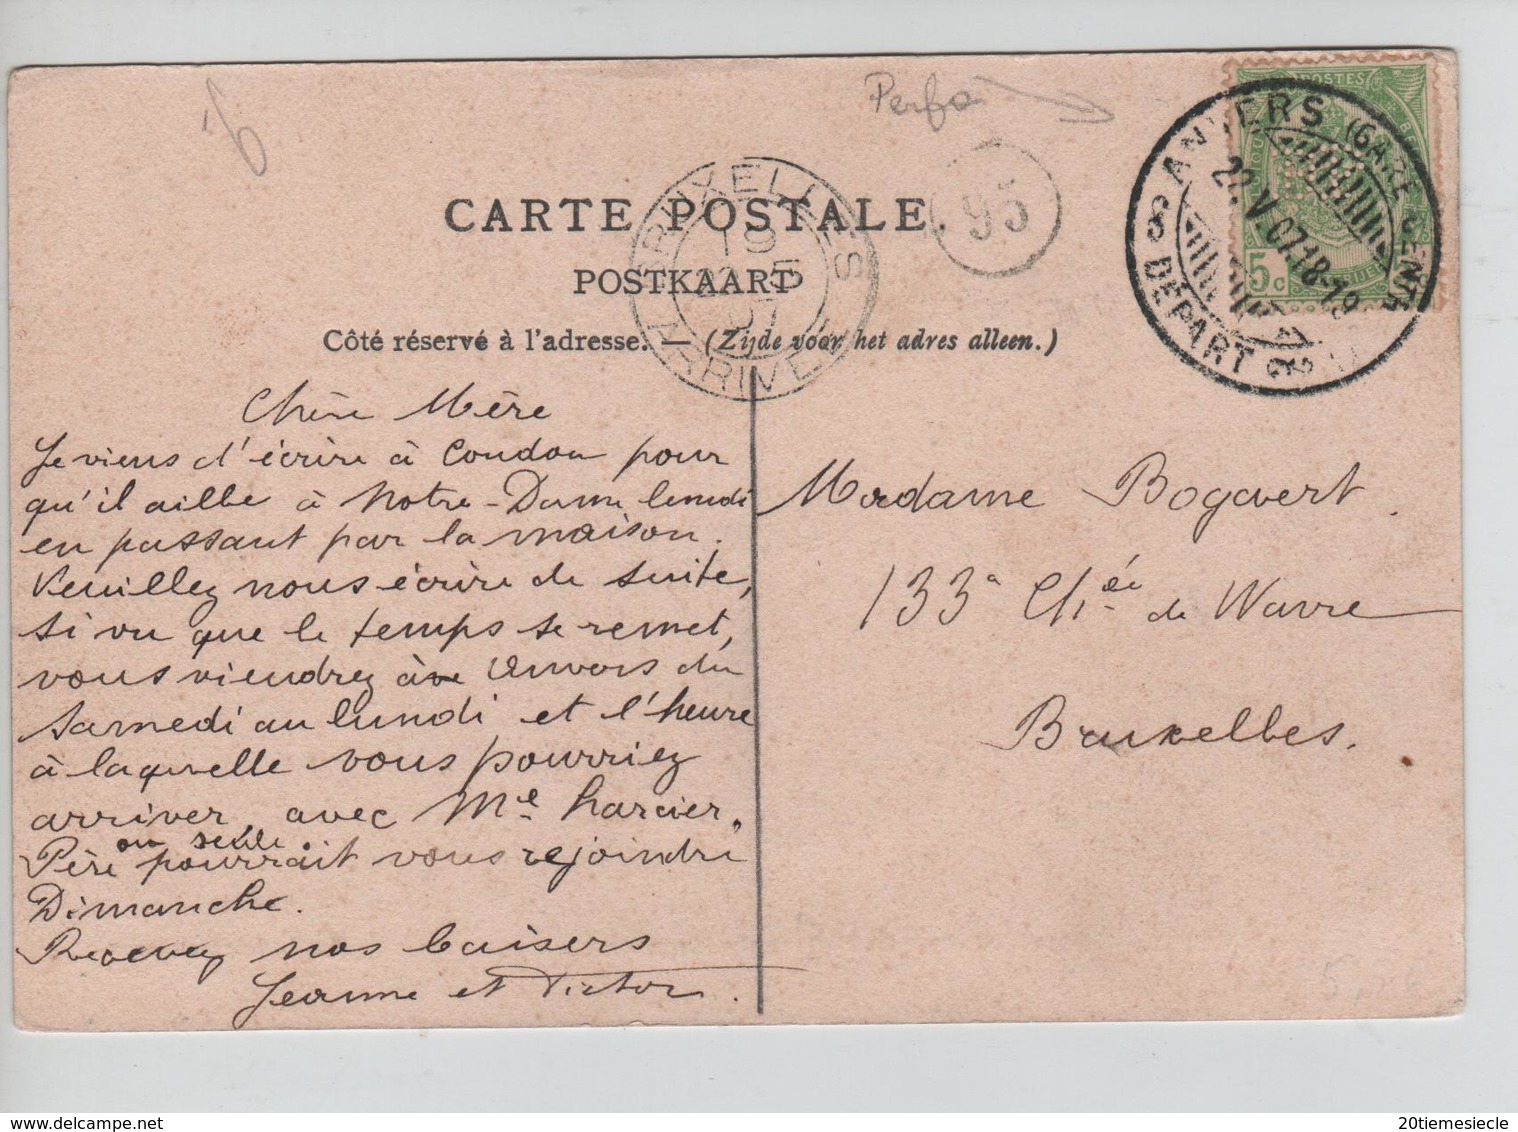 Perfo
POSTES
ANVERS (GARE CENTR
22 V 07.18-19
DÉPART
5c
BRUXELLES
19
22 5
07
ARRIVEE
95
CARTE POSTALE.
POSTKAART
Côté réservé à l'adresse. — (Zijde vóór het adres alleen.)
Chère Mère
Je viens d'écrire à Coudou pour
qu'il aille à Notre-Dame lundi
en passant par la maison.
Veuillez nous écrire de suite,
si vu que le temps se remet,
vous viendrez à Anvers du
Samedi au lundi et l'heure
à laquelle vous pourriez
arriver avec Me harcier.
ou seule.
Père pourrait vous rejoindre
Dimanche.
Recevez nos baisers
Jeanne et Victor.
Madame Bogaert.
133a Chée de Wavre
Bruxelles.
20tiemesiecle